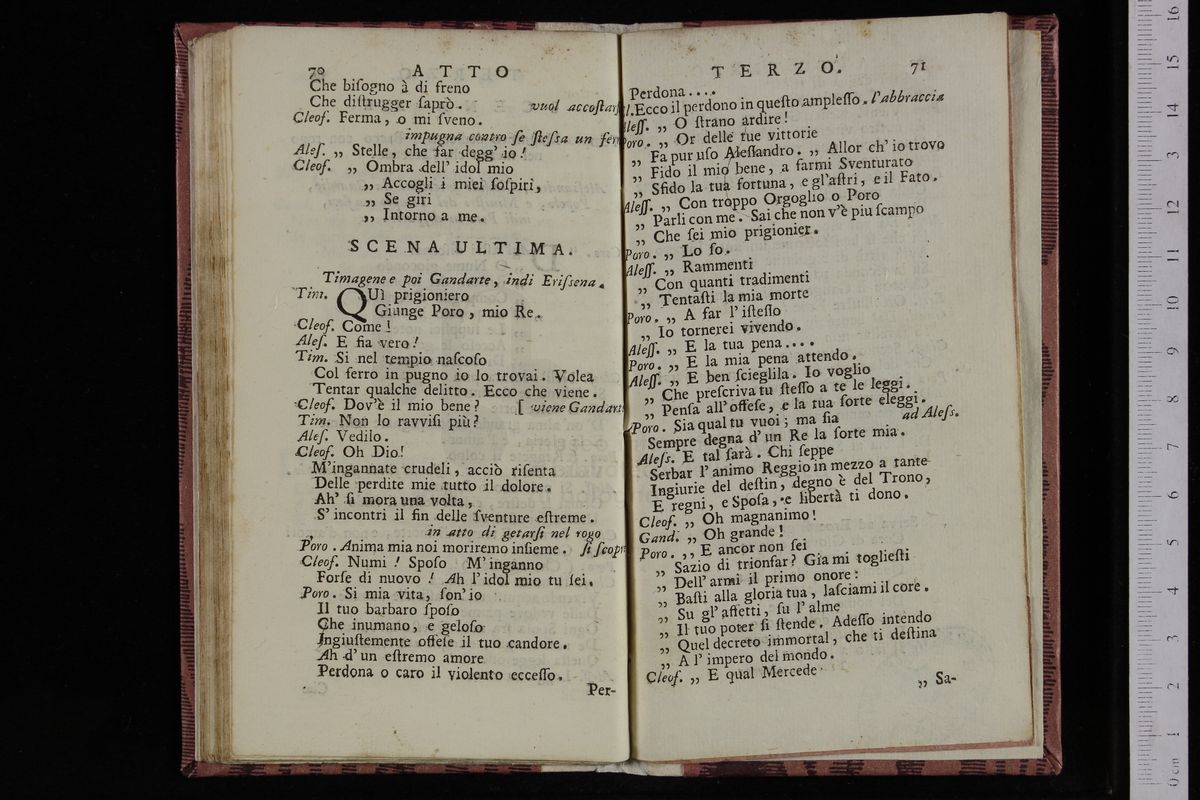 70 ATTO
Che biſogno à di freno
Che diſtrugger ſaprò. vuol accoſtarſ
Cleoſ. Ferma, o mi ſveno.
impugna contro ſe ſteſsa un fer
Aleſ. „ Stelle, che far degg' io!
Cleof. „ Ombra dell' idol mio
„ Accogli i miei ſoſpiri,
„ Se giri
„ Intorno a me.
SCENA ULTIMA.
Timagene e poi Gandarte, indi Eriſsena.
Tim. QUì prigioniero
Giunge Poro, mio Re.
Cleof. Come!
Aleſ. E fia vero!
Tim. Si nel tempio naſcoſo
Col ferro in pugno io lo trovai. Volea
Tentar qualche delitto. Ecco che viene.
Cleof. Dov'è il mio bene? [ viene Gandart
Tim. Non lo ravviſi più?
Aleſ. Vedilo.
Cleof. Oh Dio!
M'ingannate crudeli, acciò riſenta
Delle perdite mie tutto il dolore.
Ah' ſi mora una volta,
S' incontri il fin delle ſventure eſtreme.
in atto di getarſi nel rogo
Poro. Anima mia noi moriremo inſieme. ſi ſcopr
Cleof. Numi! Spoſo M'inganno
Forſe di nuovo! Ah l'idol mio tu ſei.
Poro. Si mia vita, ſon' io
Il tuo barbaro ſpoſo
Che inumano, e geloſo
Ingiuſtemente offeſe il tuo candore.
Ah d'un eſtremo amore
Perdona o caro il violento ecceſſo.
Per-
TERZO. 71
Perdona....
Ecco il perdono in queſto ampleſſo. l'abbraccia
leſſ. „ O ſtrano ardire!
Poro. „ Or delle tue vittorie
„ Fa pur uſo Aleſſandro. „ Allor ch' io trovo
„ Fido il mio bene, a farmi Sventurato
„ Sfido la tua fortuna, e gl'aſtri, e il Fato.
Aleſſ. „ Con troppo Orgoglio o Poro
„ Parli con me. Sai che non v'è piu ſcampo
„ Che ſei mio prigionier.
Poro. „ Lo ſo.
Aleſſ. „ Rammenti
„ Con quanti tradimenti
„ Tentaſti la mia morte
Poro. „ A far l'iſteſſo
„ Io tornerei vivendo.
Aleſſ. „ E la tua pena....
Poro. „ E la mia pena attendo.
Aleſſ. „ E ben ſcieglila. Io voglio
„ Che preſcriva tu ſteſſo a te le leggi.
„ Penſa all'offeſe, e la tua ſorte eleggi.
Poro. Sia qual tu vuoi; ma ſia ad Aleſs.
Sempre degna d' un Re la ſorte mia.
Aleſs. E tal ſarà. Chi ſeppe
Serbar l'animo Reggio in mezzo a tante
Ingiurie del deſtin, degno è del Trono,
E regni, e Spoſa, e libertà ti dono.
Cleof. „ Oh magnanimo!
Gand. „ Oh grande!
Poro. „ E ancor non ſei
„ Sazio di trionfar? Gia mi toglieſti
„ Dell'armi il primo onore:
„ Baſti alla gloria tua, laſciami il core.
„ Su gl' affetti, ſu l'alme
„ Il tuo poter ſi ſtende. Adeſſo intendo
„ Quel decreto immortal, che ti deſtina
„ A l' impero del mondo.
Cleof. „ E qual Mercede
„ Sa-
16
15
14
13
12
11
10
9
8
7
6
5
4
3
2
1
0 cm